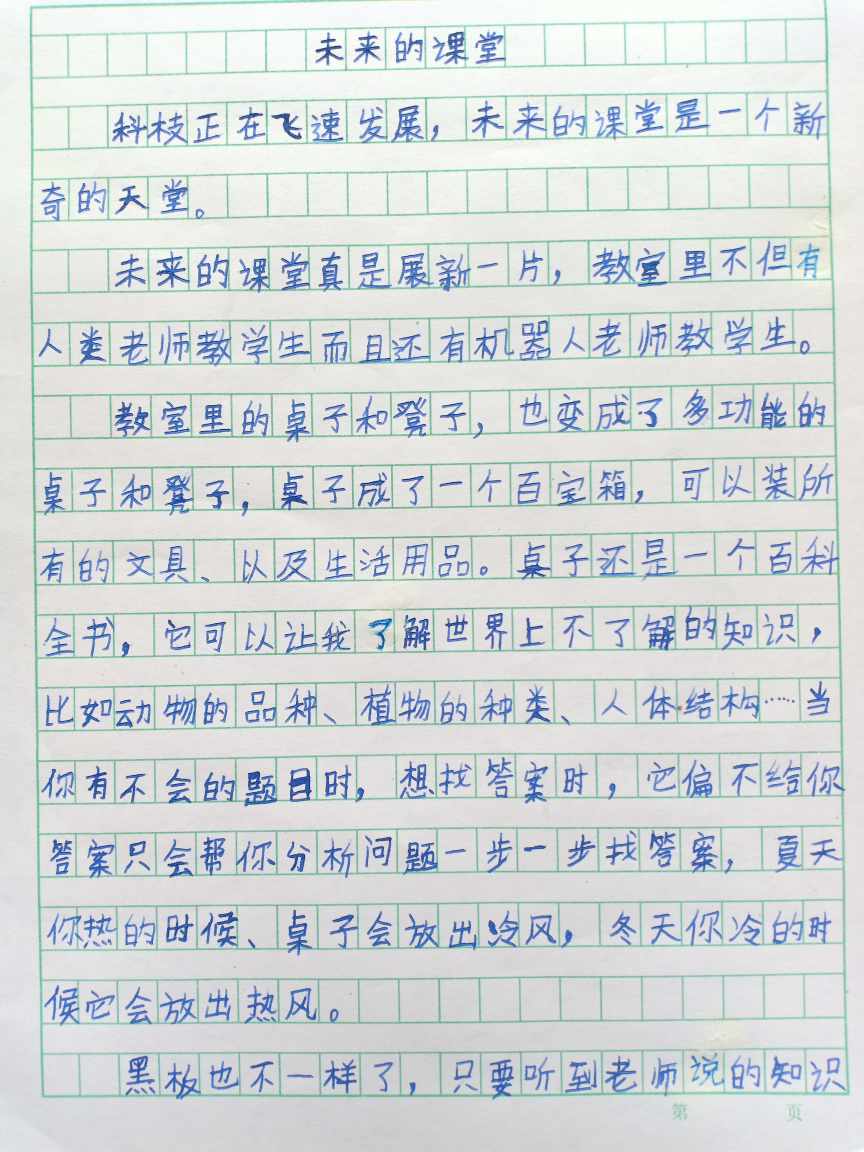 未来的课堂
科枝正在飞速发展，未来的课堂是一个新
奇的天堂。
未来的课堂真是展新一片，教室里不但有
人类老师教学生而且还有机器人老师教学生。
教室里的桌子和凳子，也变成了多功能的
桌子和凳子，桌子成了一个百宝箱，可以装所
有的文具、以及生活用品。桌子还是一个百科
全书，它可以让我了解世界上不了解的知识，
比如动物的品种、植物的种类、人体结构……当
你有不会的题目时，想找答案时，它偏不给你
答案只会帮你分析问题一步一步找答案，夏天
你热的时候、桌子会放出冷风，冬天你冷的时
候它会放出热风。
黑板也不一样了，只要听到老师说的知识
第 页